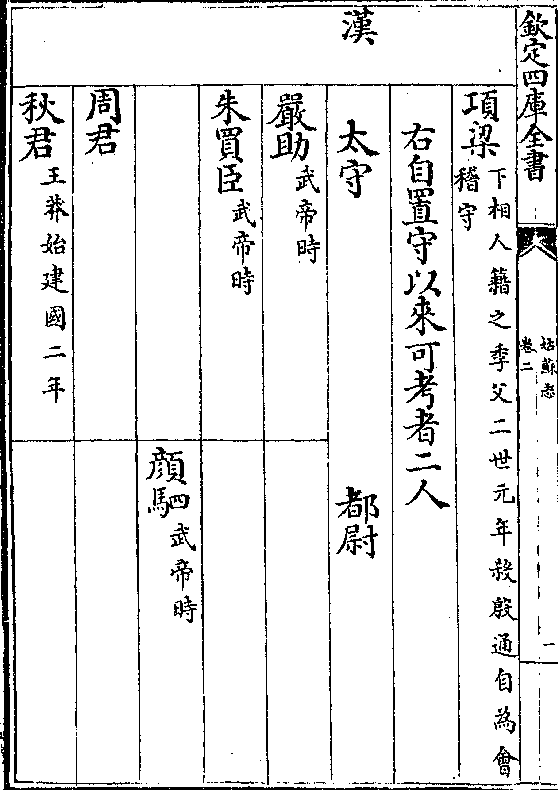 欽定四庫全書
姑蘇志
卷二
一
項梁下相人籍之季父二世元年殺殷通自為會稽守
右自置守以來可考者二人
漢
太守 都尉
嚴助武帝時
朱買臣武帝時
顏駟武帝時
周君
秋君王莽始建國二年